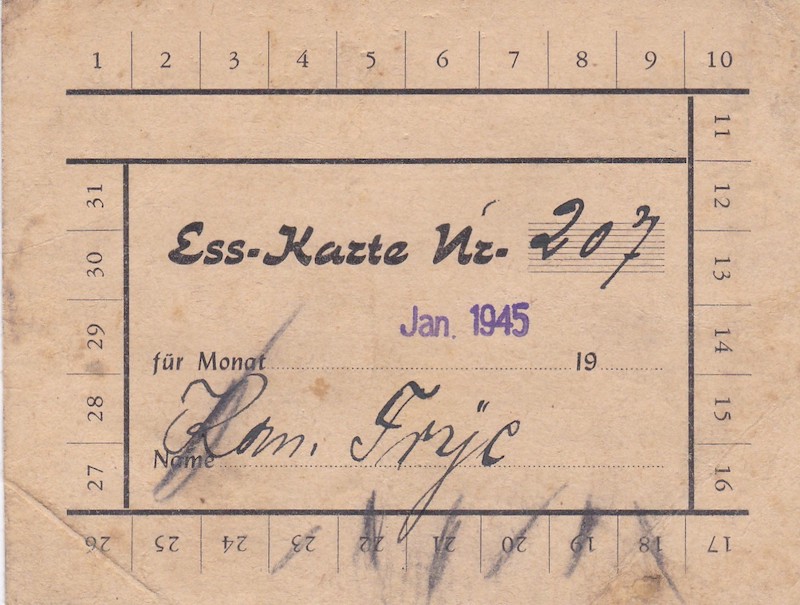 1 2 3 4 5 6 7 8 9 10
11
12
13
14
15
16
17
18
19
20
21
22
23
24
25
26
27
28
29
30
31
Ess-Karte Nr. 207
Jan. 1945
für Monat 19
Kam. Frÿc
Name